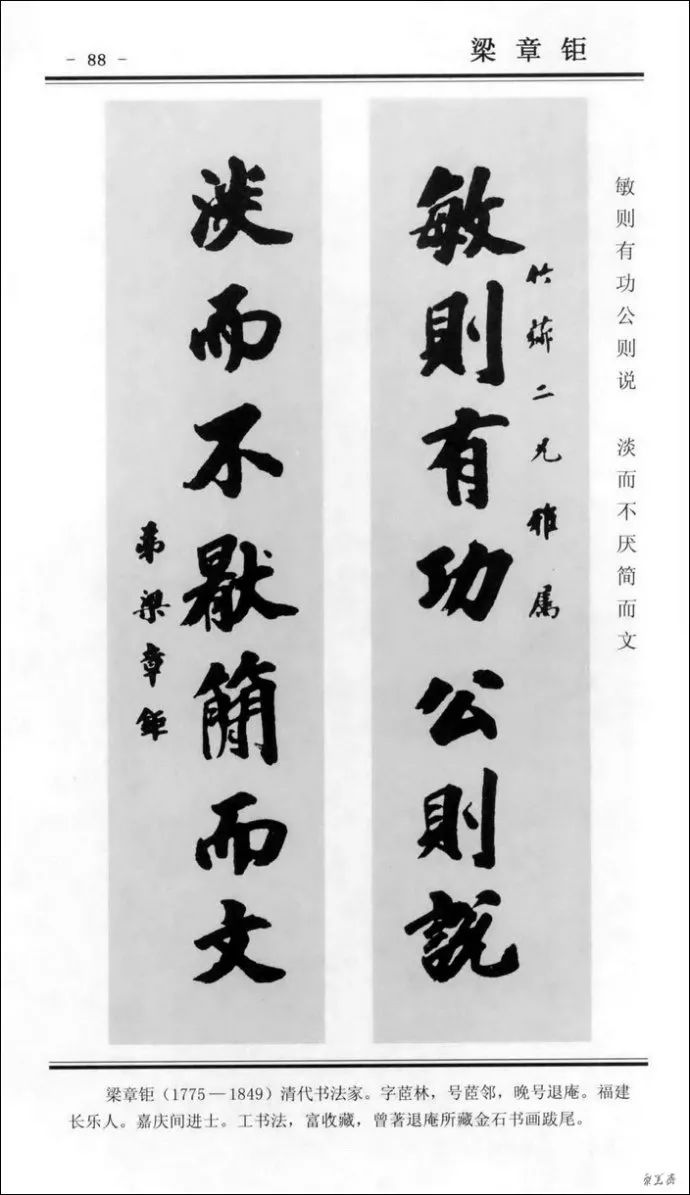 - 88 -
梁章钜
敏则有功公则说 淡而不厌简而文
竹
二兄雅属
敏則有功公則説
淡而不厭簡而文
弟梁章鉅
梁章钜(1775—1849)清代书法家。字茝林,号茝邻,晚号退庵。福建
长乐人。嘉庆间进士。工书法,富收藏,曾著退庵所藏金石书画跋尾。